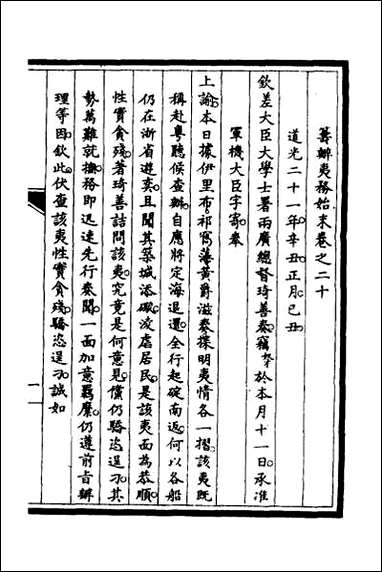 籌辦夷務始末卷之二十
道光二十一年辛丑正月己丑
欽差大臣大學士署兩廣總督琦善奏竊奴才於本月十一日承准
軍機大臣字寄奉
上諭本日據伊里布祁寯藻黃爵滋奏探明夷情各一摺該夷既
稱赴粵聽候查辦自應將定海退還全行起碇南返何以各船
仍在浙省遊奕且聞其築城添礮凌虐居民是該夷面為恭順
性實貪殘著琦善詰問該夷究竟是何意見儻仍驕恣逞刁其
勢萬難就撫務即迅速先行奏聞一面加意羈縻仍遵前旨辦
理等因欽此伏查該夷性實貪殘驕恣逞刁誠如
一